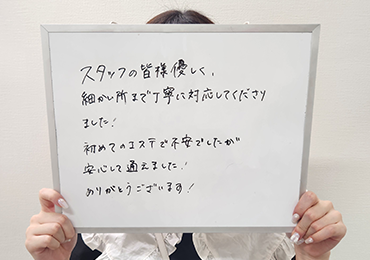 スタッフの皆様優しく、
細かい所まで丁寧に対応してくださり
ました!
初めてのエステで不安でしたが
安心して通えました!
ありがとうございます!